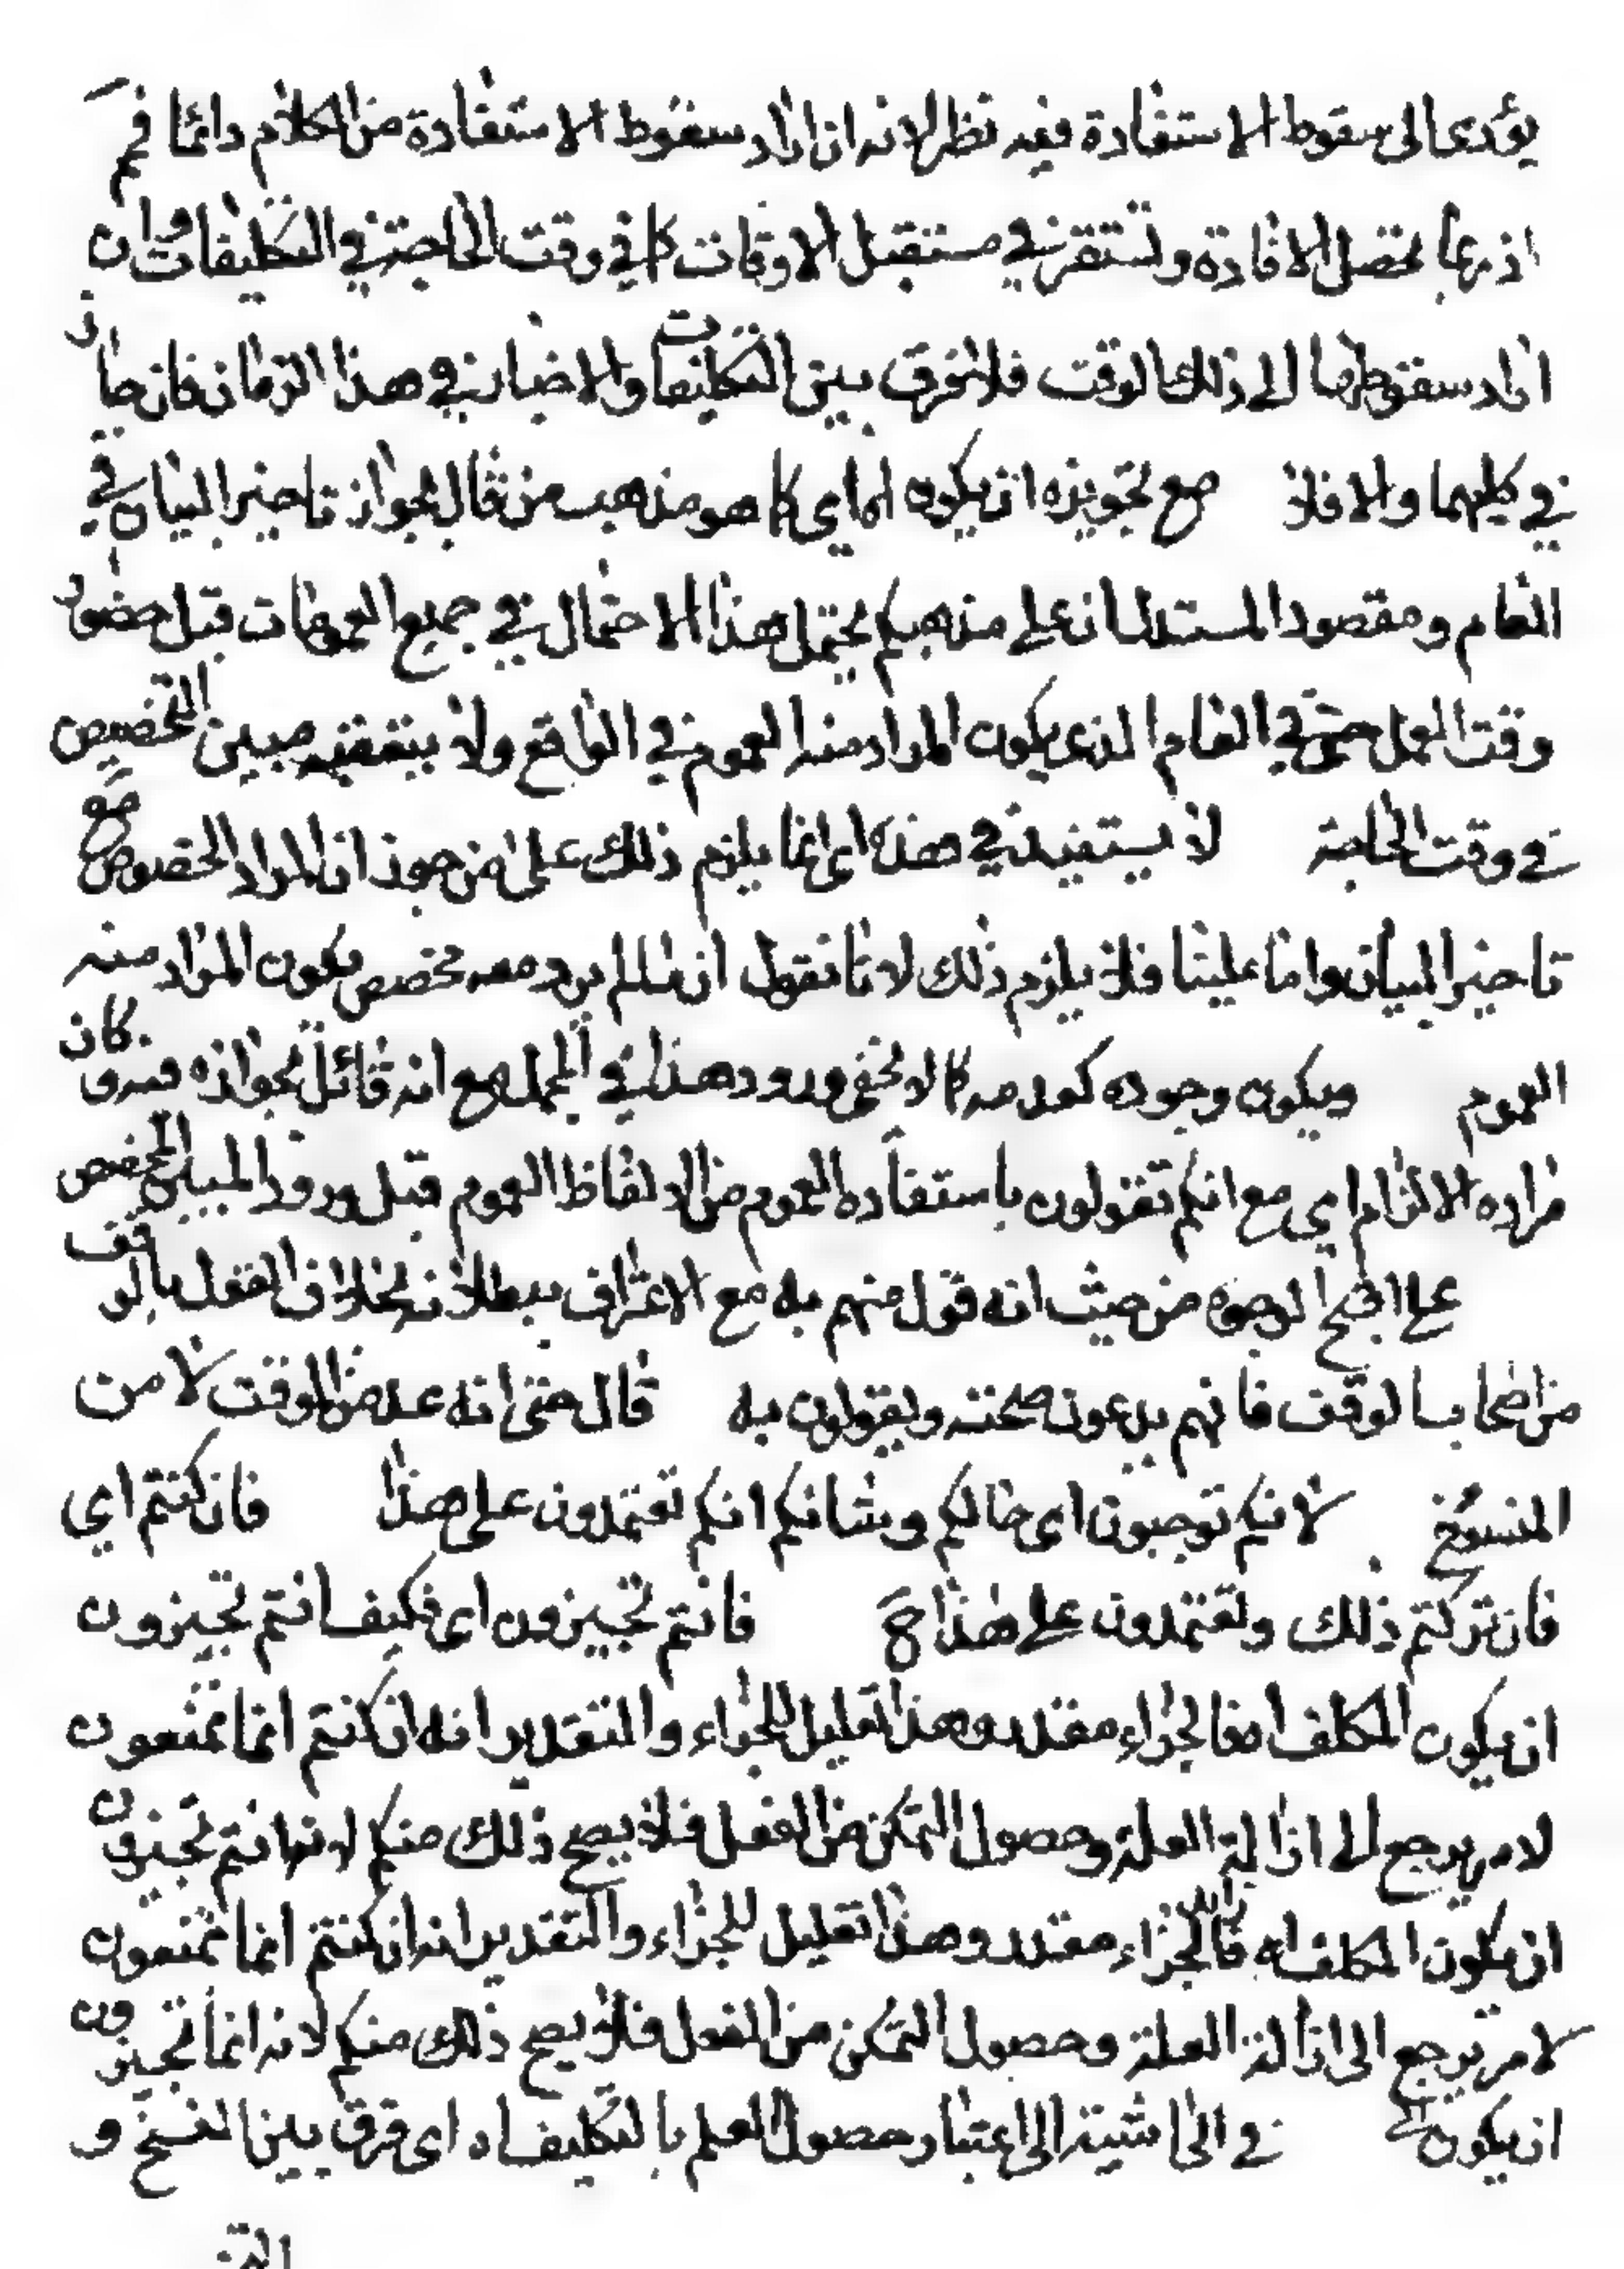 يؤدى الى سقوط الاستفادة فيه نظر لانه ان اراد سقوط الاستفادة من الكلام دائما فمم
اذ ربما تحصل الافادة وتستقر في مستقبل الاوقات كما في وقت الحاجة في التكليفات وان
اراد سقوطها الى ذلك الوقت فلا فرق بين التكليفات والاخبار في هذا الزمان فان جاز
في كليهما والا فلا مع تجويزه ان يكون اى كما هو مذهب من قال بجواز تاخير البيان في
العام ومقصود المستدل ان على مذهبكم يحتمل هذا الاحتمال في جميع العمومات قبل حضور
وقت العمل حتى في العام الذى يكون المراد منه العموم في الواقع ولا يتعقبه مبين التخصيص
في وقت الحاجة لا يستفيد في هذه اى انما يلزم ذلك على من جوز ان المراد الخصوص مع
تاخير البيان واما علينا فلا يلزم ذلك لانا نقول ان ما لم يرد معه مخصص يكون المراد منه
العموم ويكون وجوده كعدمه كما لا يخفى ورود هذا في المجمل مع انه قائل بجوازه فيه كان
مراده الالزام اي مع انكم تقولون باستفادة العموم من الالفاظ العموم قبل ورود المبين المخصص
على اقبح الوجوه من حيث انه قول منهم به مع الاعتراف ببطلانه بخلاف القول بالوقف
من اصحاب الوقف فانهم يدعون صحته ويقولون به قال حتى انه عد من الوقت لا من
المنسوخ لانكم توجبون اى حالكم وشانكم انكم تعتمدون على هذا فان كنتم اي
فان تركتم ذلك وتعتمدون على هذا ح فانتم تجيزون اى فكيف انتم تجيزون
ان يكون المكلف اه فالجزاء مقدر وهذا تعليل للجزاء والتقدير انه ان كنتم انما تمنعون
لامر يرجع الى ازالة العلة وحصول التمكن من الفعل فلا يصح ذلك منكم لانها انتم تجيزون
ان يكون المكلف اه فالجزاء مقدر وهذا تعليل للجزاء والتقدير انه ان كنتم انما تمنعون
لامر يرجع الى ازالة العلة وحصول التمكن من الفعل فلا يصح ذلك منكم لانه انما تجيزون
ان يكون الخ في الحاشية الى اعتبار حصول العلم بالتكليف اه اى فرق بين النسخ و